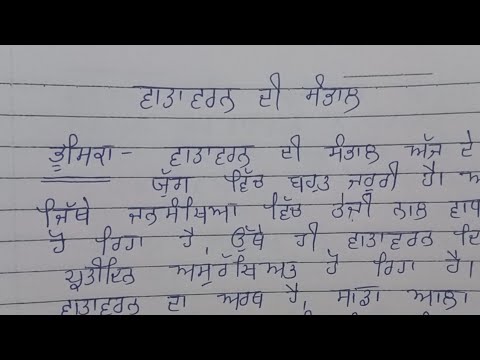 ਵਾਤਾਵਰਨ ਦੀ ਸੰਭਾਲ
ਭੂਮਿਕਾ - ਵਾਤਾਵਰਨ ਦੀ ਸੰਭਾਲ ਅੱਜ ਦੇ
ਯੁੱਗ ਵਿੱਚ ਬਹੁਤ ਜ਼ਰੂਰੀ ਹੈ।
ਜਿੱਥੇ ਜਨਸੰਖਿਆ ਵਿੱਚ ਤੇਜ਼ੀ ਨਾਲ
ਹੋ ਰਿਹਾ ਹੈ, ਉੱਥੇ ਹੀ ਵਾਤਾਵਰਨ
ਪ੍ਰਤੀਦਿਨ ਅਸੁਰੱਖਿਅਤ ਹੋ ਰਿਹਾ ਹੈ।
ਵਾਤਾਵਰਨ ਦਾ ਅਰਥ ਹੈ, ਸਾਡਾ ਆਲਾ